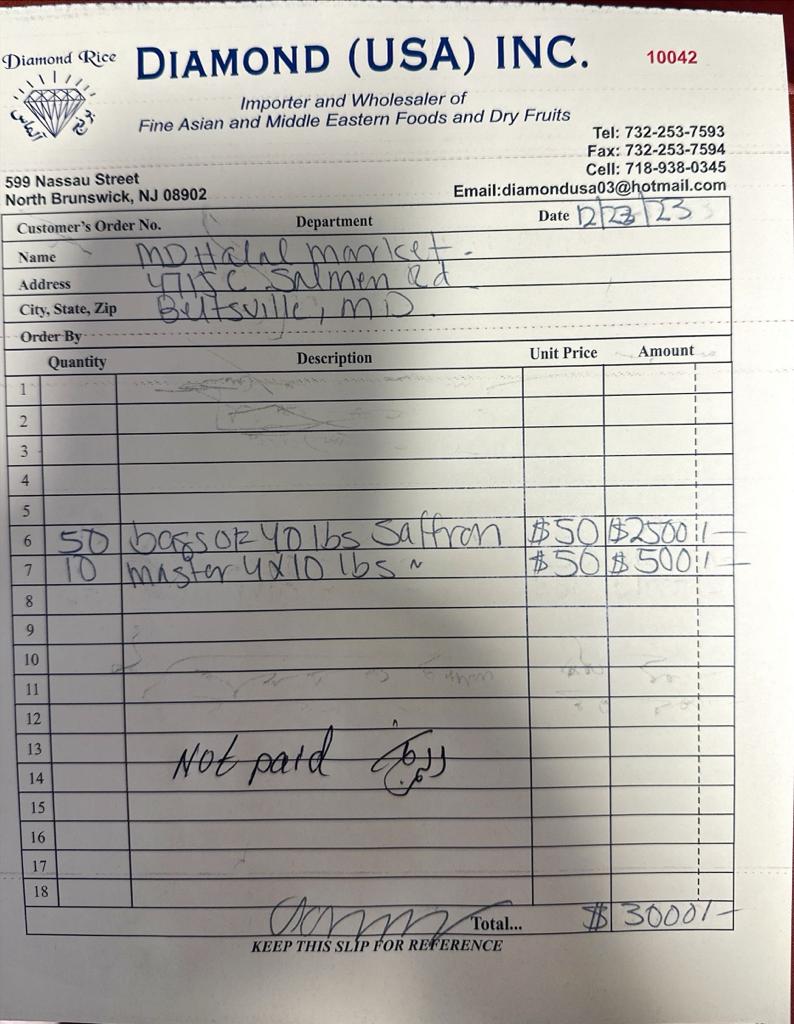 Diamond Rice
DIAMOND (USA) INC.
10042
Importer and Wholesaler of
Fine Asian and Middle Eastern Foods and Dry Fruits
Tel: 732-253-7593
Fax: 732-253-7594
Cell: 718-938-0345
Email:diamondusa03@hotmail.com
599 Nassau Street
North Brunswick, NJ 08902
Customer's Order No. Department Date 12/23/23
Name MD Halal market.
Address 4715 C Salmen Rd
City, State, Zip Beltsville, MD
Order By
Quantity Description Unit Price Amount
1
2
3
4
5
6 50 bags of 40 lbs Saffron $50 $2500/-
7 10 master 4x10 lbs ~ $50 $500/-
8
9
10
11
12
13 Not paid
14
15
16
17
18
Total... $ 3000/-
KEEP THIS SLIP FOR REFERENCE